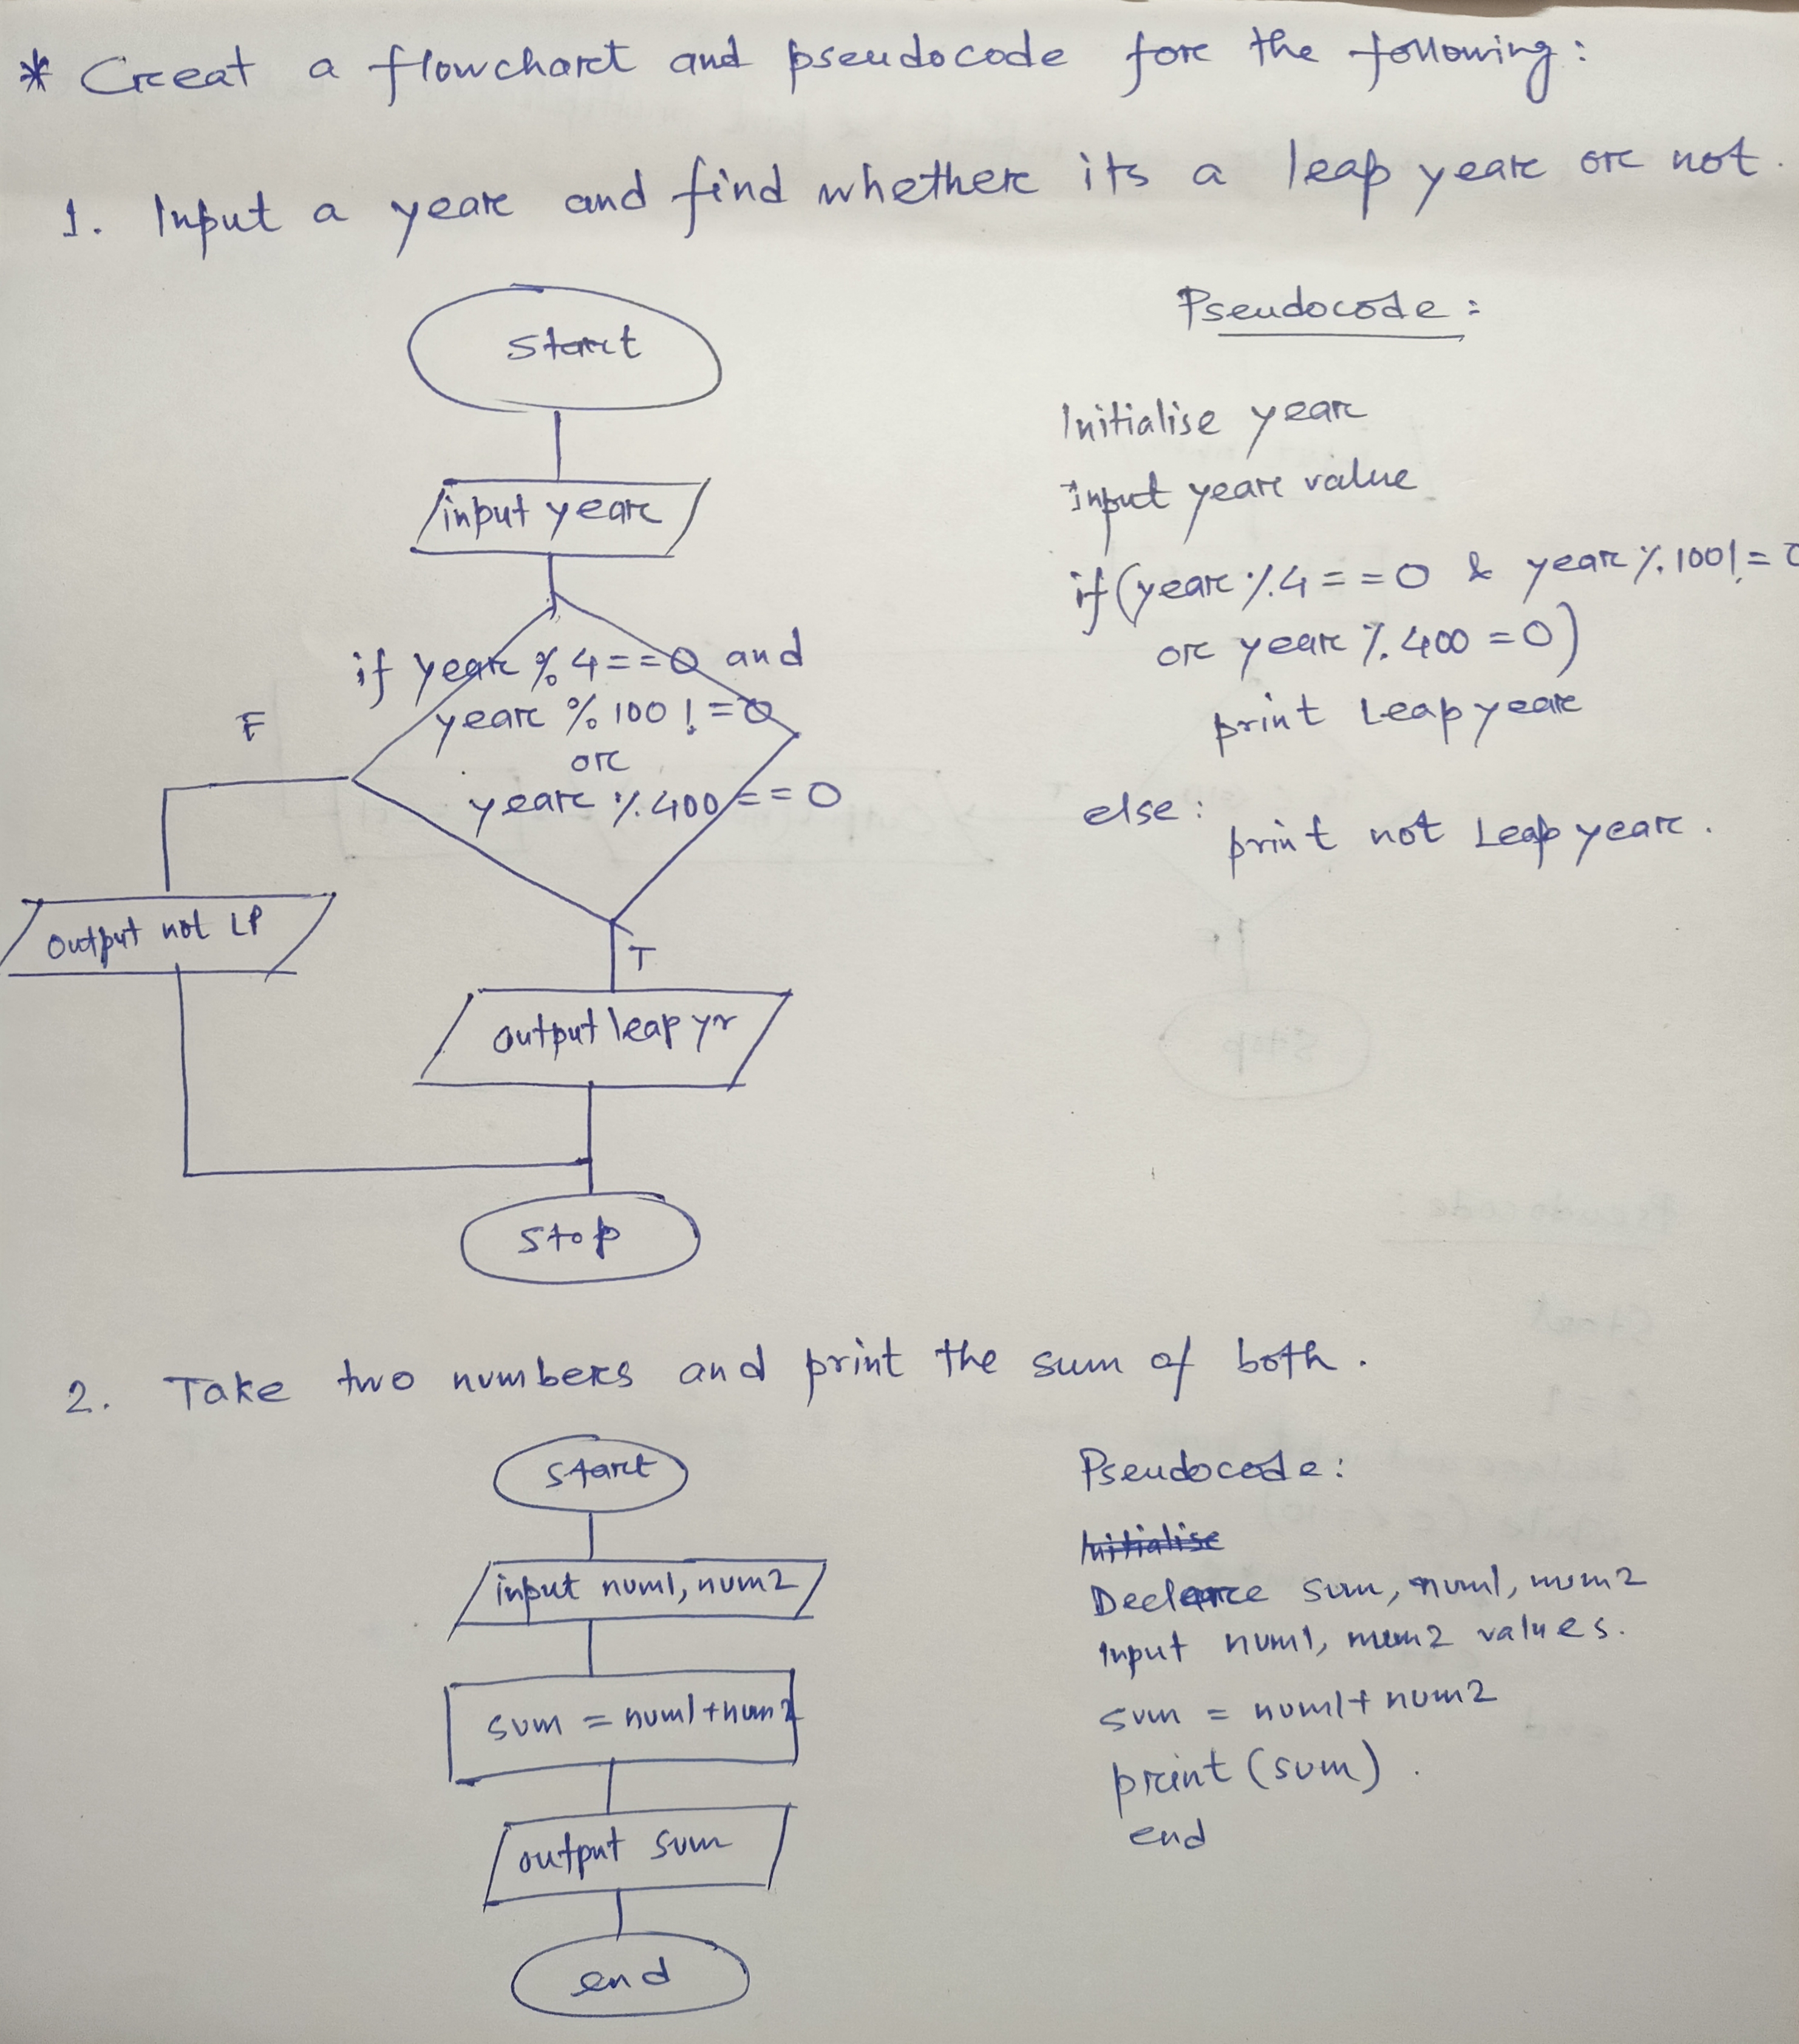 * Creat a flowchart and pseudocode for the following:
1. Input a year and find whether its a leap year or not.
start
input year
if year % 4 == 0 and
year % 100 != 0
or
year % 400 == 0
F
T
output not LP
output leap yr
stop
Pseudocode:
Initialise year
input year value
if (year % 4 == 0 & year % 100 != 0
or year % 400 = 0)
print Leap year
else:
print not Leap year.
2. Take two numbers and print the sum of both.
start
input num1, num2
sum = num1 + num2
output sum
end
Pseudocode:
Initialise
Declare sum, num1, num2
Input num1, num2 values.
sum = num1 + num2
print (sum).
end